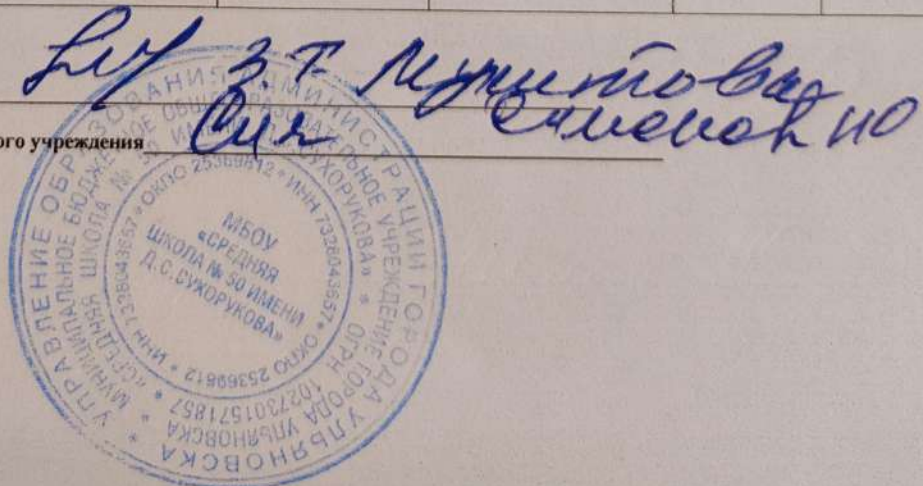 З.Т. Мунитова
ого учреждения Семенов НО
УПРАВЛЕНИЕ ОБРАЗОВАНИЯ АДМИНИСТРАЦИИ ГОРОДА УЛЬЯНОВСКА *
МУНИЦИПАЛЬНОЕ БЮДЖЕТНОЕ ОБЩЕОБРАЗОВАТЕЛЬНОЕ УЧРЕЖДЕНИЕ ГОРОДА УЛЬЯНОВСКА *
«СРЕДНЯЯ ШКОЛА № 50 ИМЕНИ Д.С.СУХОРУКОВА» * ОГРН 1027301571857 *
ИНН 7328043657 * ОКПО 25369812 * ИНН 7328043657 * ОКПО 25369812 *
МБОУ
«СРЕДНЯЯ
ШКОЛА № 50 ИМЕНИ
Д.С.СУХОРУКОВА»